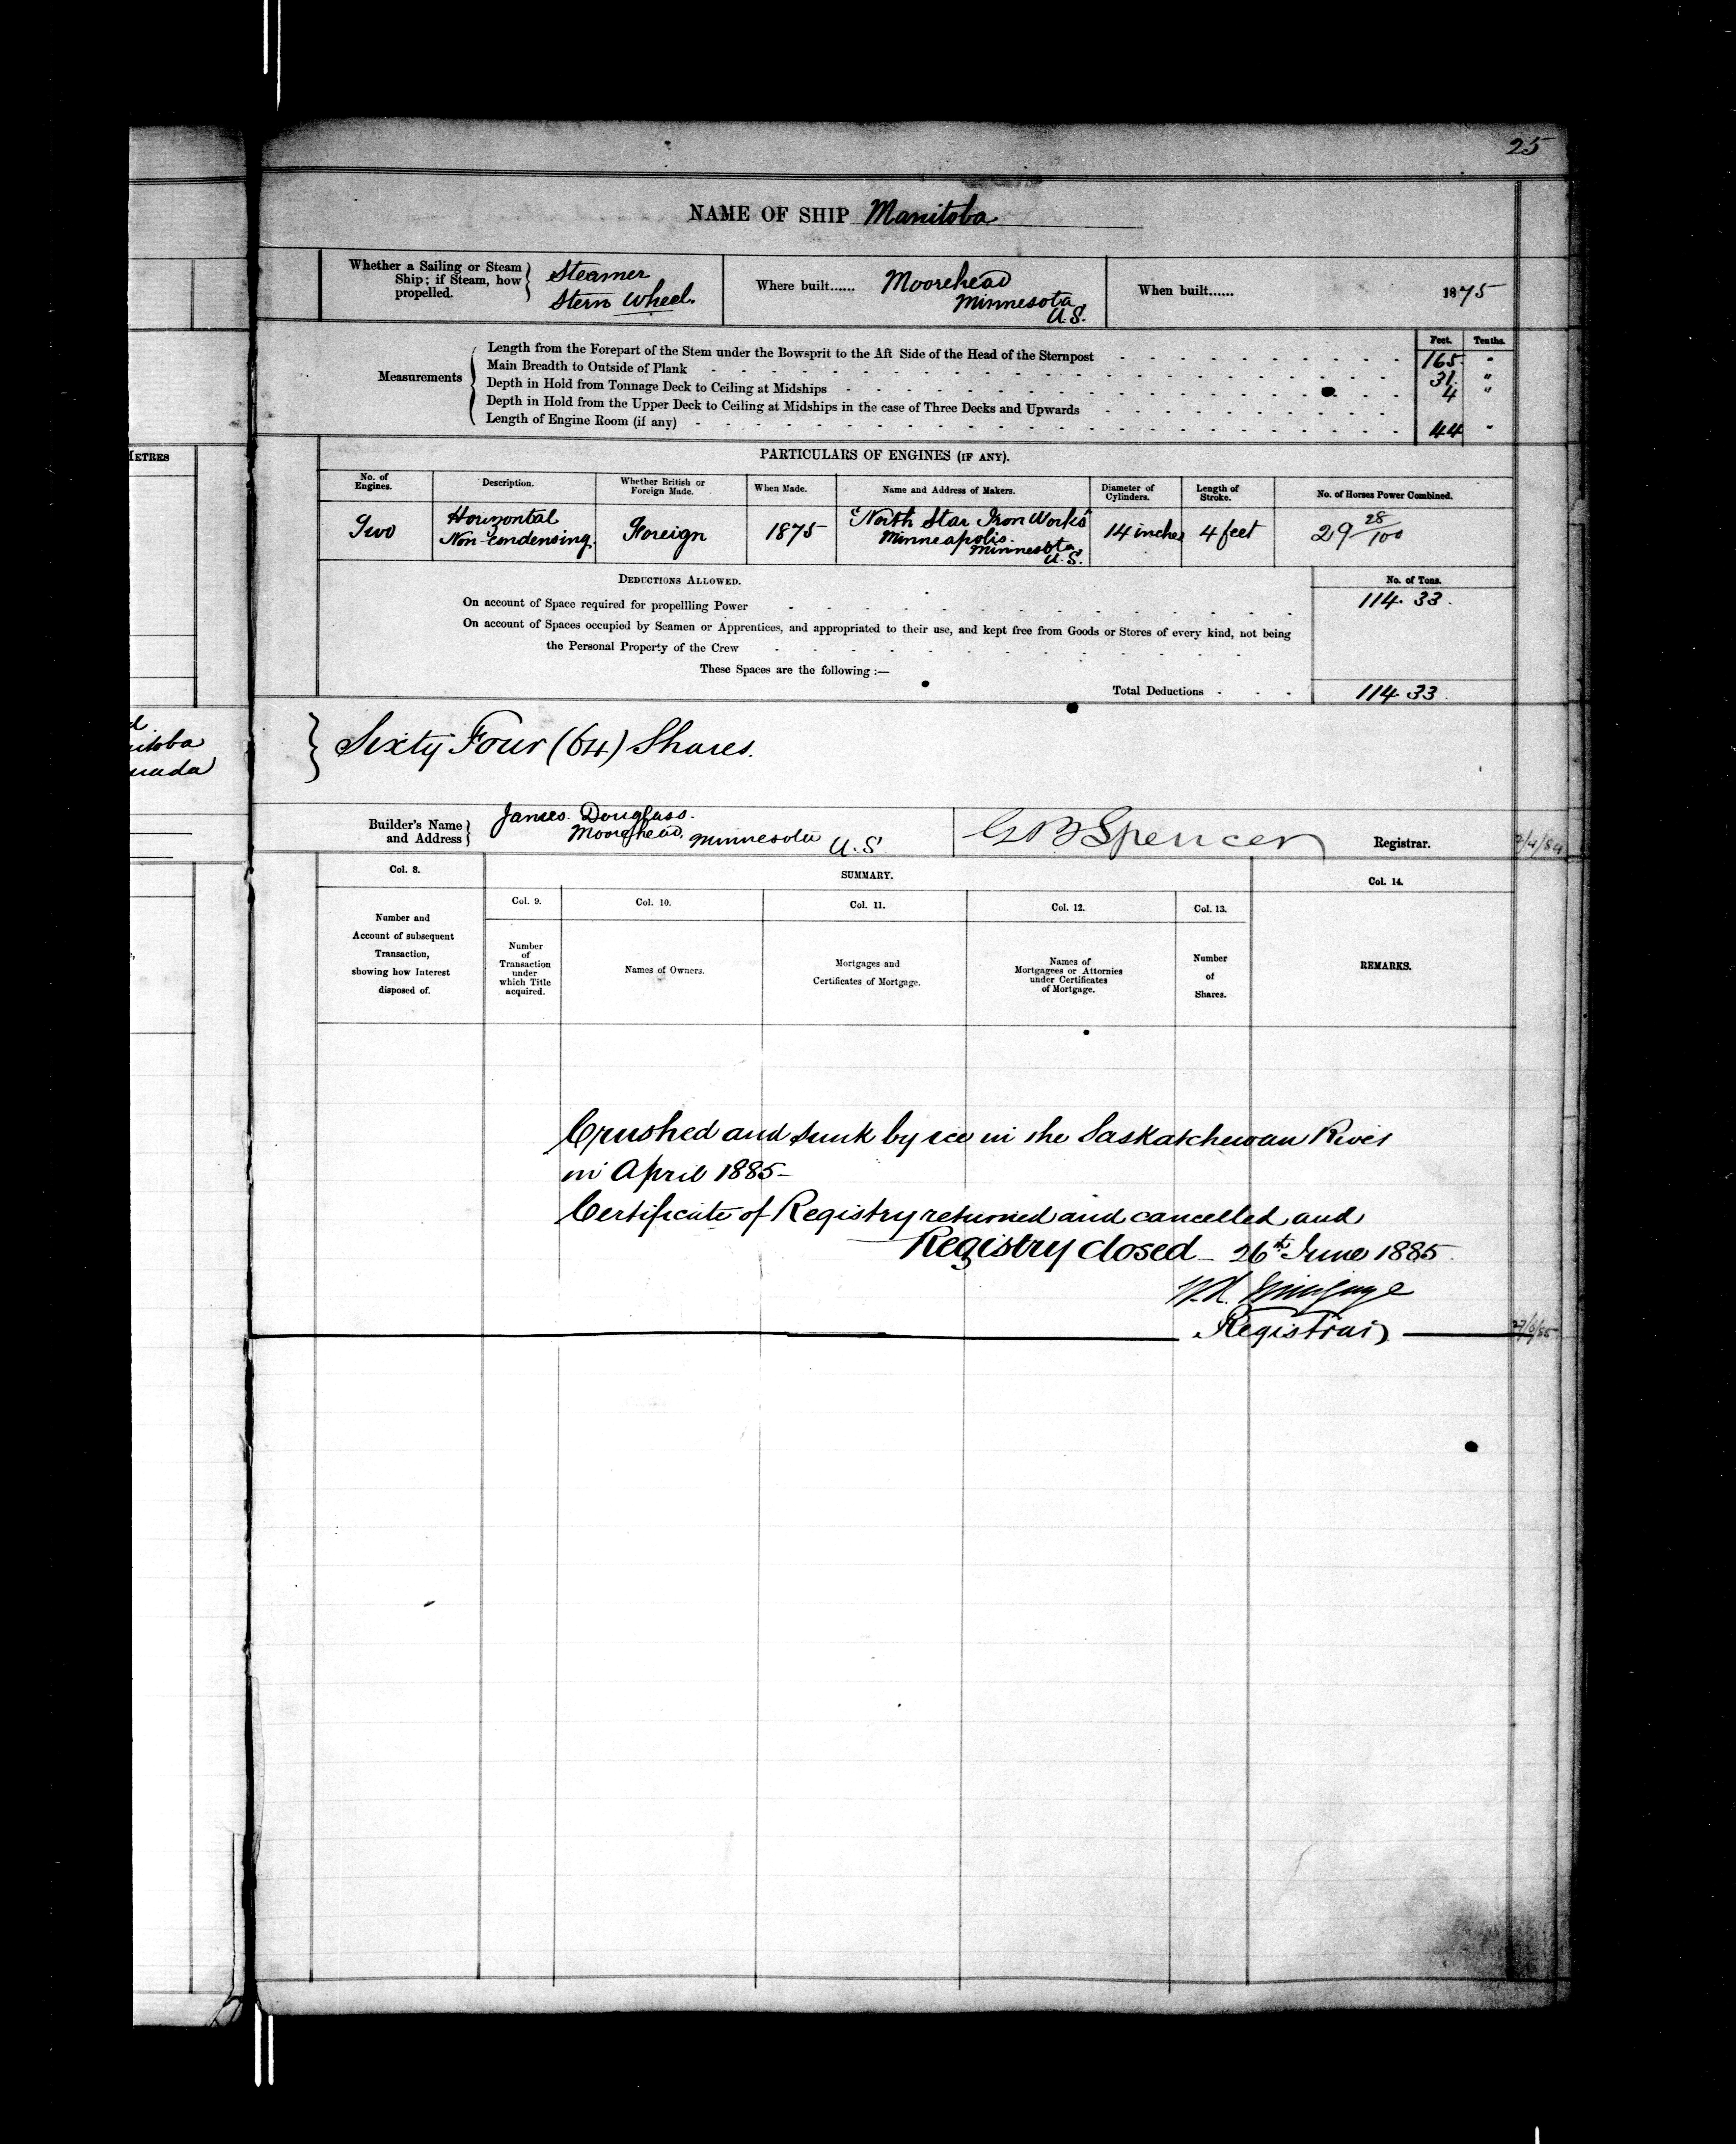 25
NAME OF SHIP Manitoba
Whether a Sailing or Steam Ship; if Steam, how propelled.
Steamer
Stern Wheel.
Where built...... Moorehead
Minnesota
U.S.
When built...... 1875
Feet. Tenths.
Measurements
Length from the Forepart of the Stem under the Bowsprit to the Aft Side of the Head of the Sternpost 165 "
Main Breadth to Outside of Plank 31. "
Depth in Hold from Tonnage Deck to Ceiling at Midships 4 "
Depth in Hold from the Upper Deck to Ceiling at Midships in the case of Three Decks and Upwards
Length of Engine Room (if any) 44 "
METRES
PARTICULARS OF ENGINES (IF ANY).
No. of Engines. Description. Whether British or Foreign Made. When Made. Name and Address of Makers. Diameter of Cylinders. Length of Stroke. No. of Horses Power Combined.
Two Horizontal Non-condensing. Foreign 1875 "North Star Iron Works" Minneapolis. Minnesota U.S. 14 inches 4 feet 29 28/100
DEDUCTIONS ALLOWED. No. of Tons.
On account of Space required for propellling Power 114. 33.
On account of Spaces occupied by Seamen or Apprentices, and appropriated to their use, and kept free from Goods or Stores of every kind, not being
the Personal Property of the Crew
These Spaces are the following :—
Total Deductions 114. 33.
Sixty Four (64) Shares.
Builder's Name and Address
James. Douglass.
Moorehead, Minnesota U.S.
G B Spencer Registrar.
Col. 8. SUMMARY. Col. 14.
Col. 9. Col. 10. Col. 11. Col. 12. Col. 13.
Number and Account of subsequent Transaction, showing how Interest disposed of.
Number of Transaction under which Title acquired.
Names of Owners.
Mortgages and Certificates of Mortgage.
Names of Mortgagees or Attornies under Certificates of Mortgage.
Number of Shares.
REMARKS.
Crushed and sunk by ice in the Saskatchewan River
in April 1885-
Certificate of Registry returned and cancelled and
Registry closed - 26th June 1885.
Registrar
27/6/85